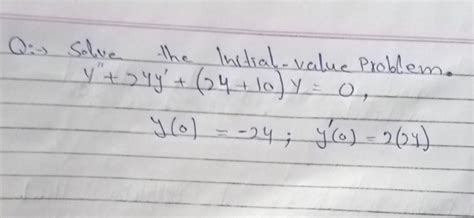 Q:→ Solve the Initial-value Problem.
y'' + 24y' + (24+10)y = 0,
y(0) = -24 ; y'(0) = 2(24)